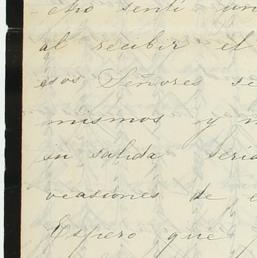 cho sentí un
al recibir el
esos Señores se
mismos y m
su salida sería
ocasiones de e
Espero que